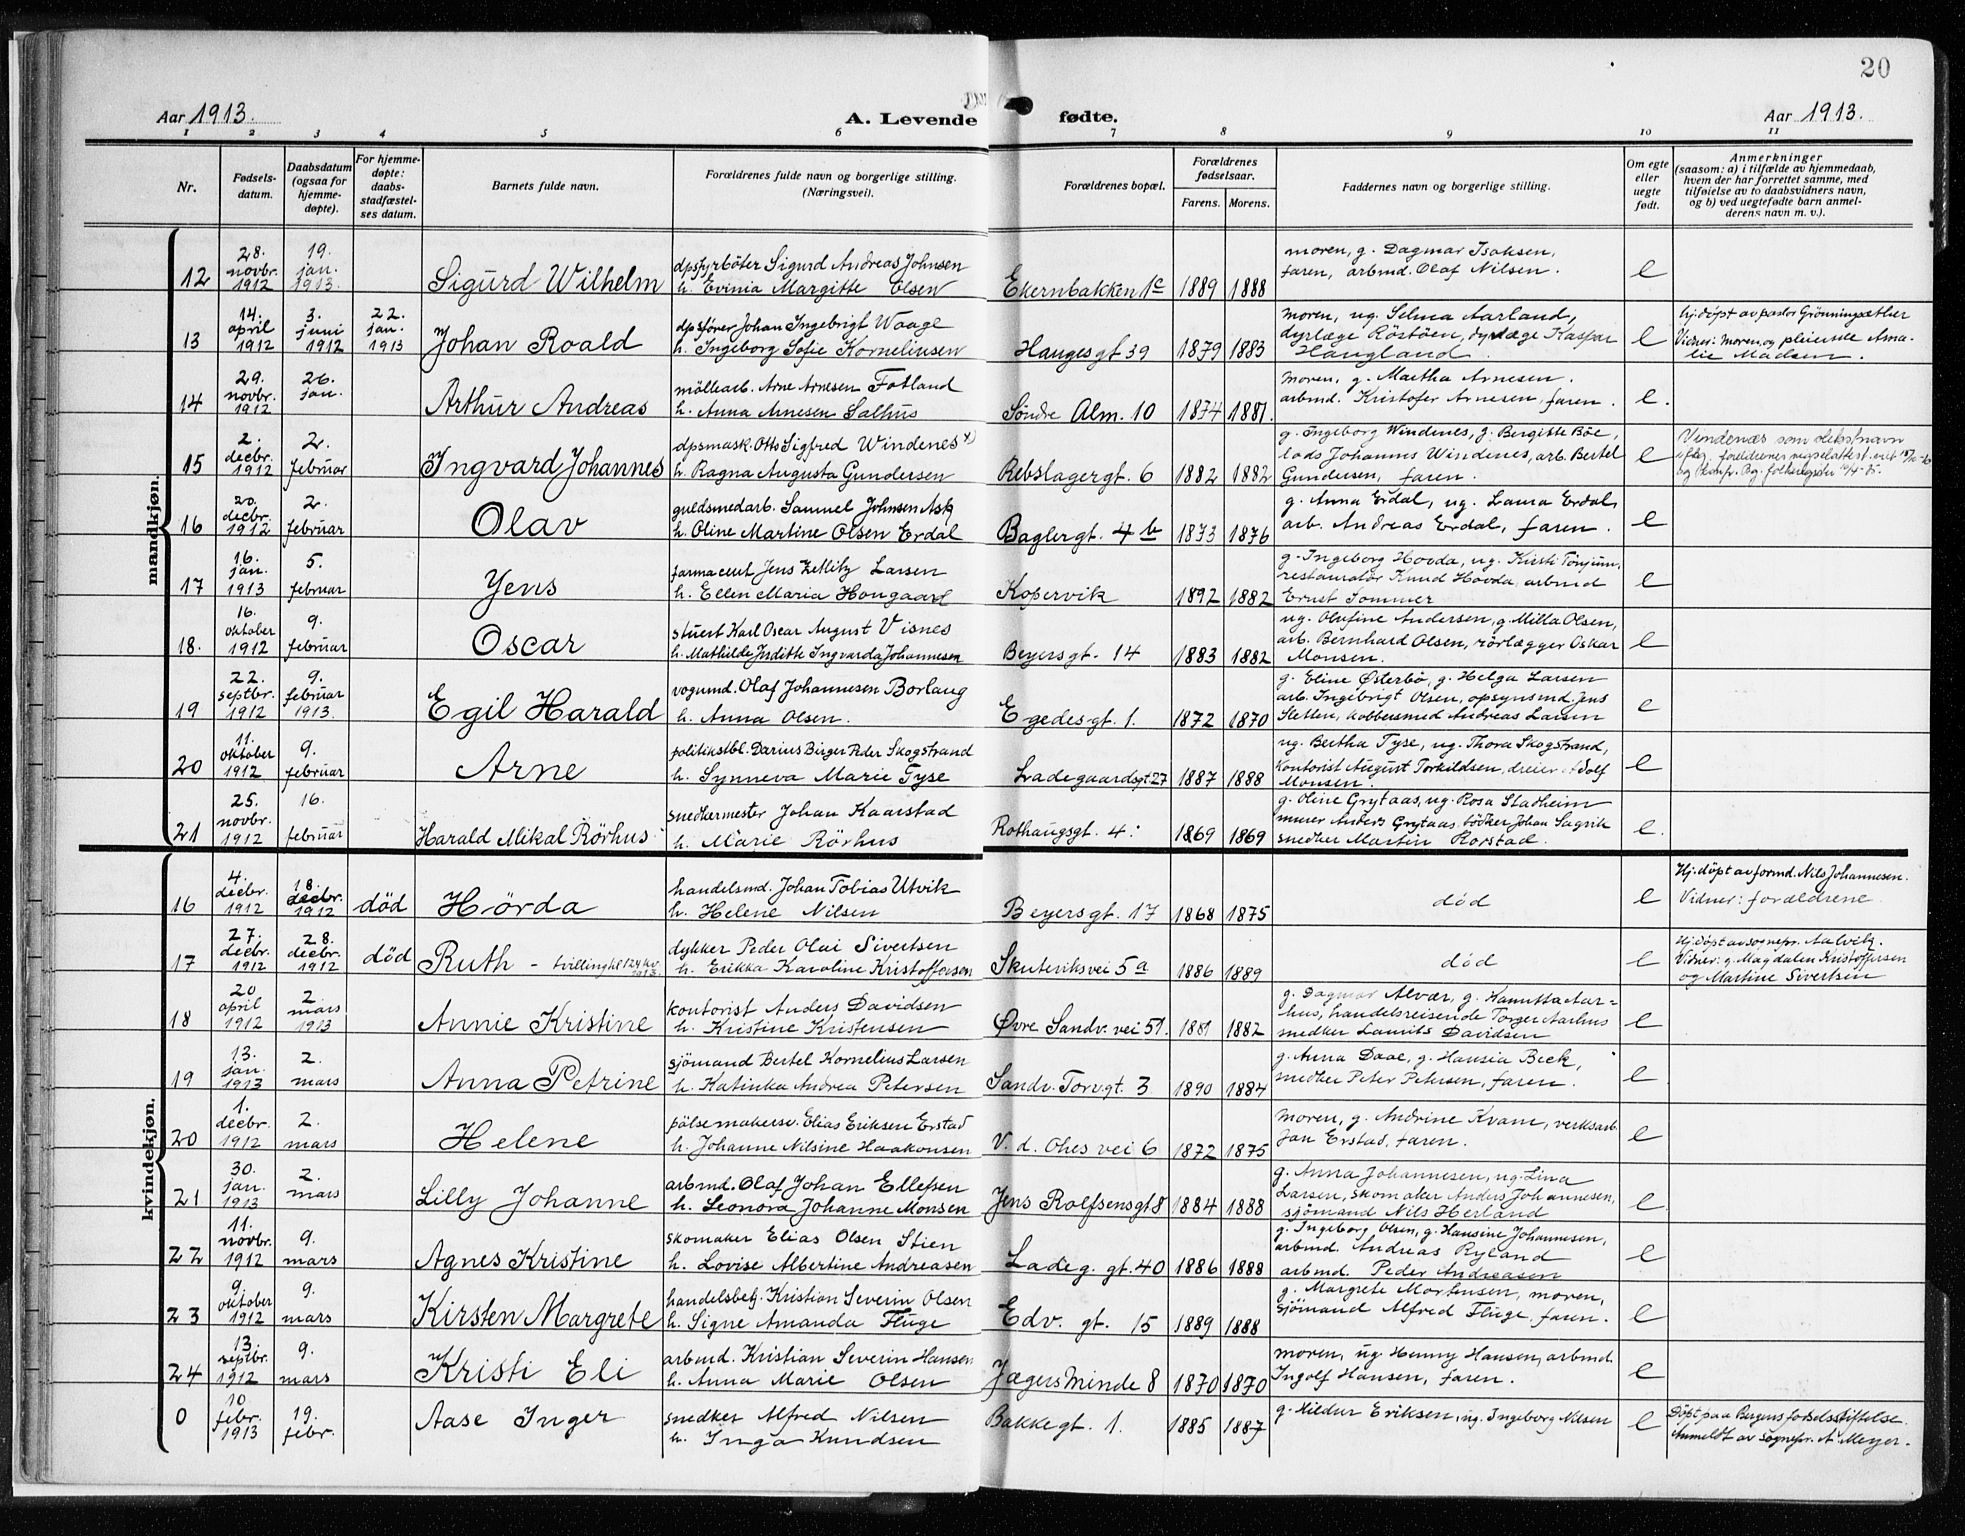 20
Aar 1913.
A. Levende fødte.
Aar 1913.
1 2 3 4 5 6 7 8 9 10 11
Nr.
Fødsels-
datum.
Daabsdatum
(ogsaa for
hjemme-
døpte).
For hjemme-
døpte:
daabs-
stadfæstel-
ses datum.
Barnets fulde navn.
Forældrenes fulde navn og borgerlige stilling.
(Næringsvei).
Forældrenes bopæl.
Forældrenes
fødselsaar.
Farens. Morens.
Faddernes navn og borgerlige stilling.
Om egte
eller
uegte
født.
Anmerkninger
(saasom: a) i tilfælde av hjemmedaab,
hvem der har forrettet samme, med
tilføielse av to daabsvidners navn,
og b) ved uegtefødte barn anmel-
derens navn m. v.).
mandkjøn.
12
28.
novbr.
1912
19.
jan.
1913.
Sigurd Wilhelm
dpsfyrböter Sigurd Andreas Johnsen
h. Evinia Margitte Olsen
Ekernbakken 1c 1889 1888
moren, g. Dagmar Isaksen,
faren, arbmd. Olaf Nilsen.
e
13
14.
april
1912
3.
juni
1912
22.
jan.
1913
Johan Roald
dpsfører Johan Ingebrigt Waage
h. Ingeborg Sofie Korneliussen
Hauges gt 39 1879 1883
moren, ug. Selma Aarland,
dyrlæge Röstöen, dyrlæge Kaspar
Haugland.
e
hj. döpt av pastor Grönningsæther
Vidner: moren og pleierske Ama-
lie Madsen.
14
29.
novbr.
1912
26.
jan.
Arthur Andreas
möllearb. Arne Arnesen Fotland
h. Anna Arnesen Salhus
Søndre Alm. 10 1874 1881.
moren, g. Martha Arnesen.
arbmd. Kristofer Arnesen, faren.
e.
15
2.
decbr.
1912
2.
februar
Ingvard Johannes
dpsmask. Otto Sigfred Windenes x)
h. Ragna Augusta Gundersen
Rebslagergt. 6 1882 1882
g. Ingeborg Windenes, g. Bergitte Böe,
lods Johannes Windenes, arb. Bertel
Gundersen, faren.
e
Vindenæs som slektsnavn
16
20.
decbr.
1912
2.
februar
Olav
guldsmedarb. Samuel Johnsen Ask
h. Oline Martine Olsen Erdal
Baglergt. 4 b 1873 1876
g. Anna Erdal, ug. Laura Erdal,
arb. Andreas Erdal, faren.
e
17
16.
jan.
1913
5.
februar
Jens
farmaceut Jens Zetlitz Larsen
h. Ellen Maria Hougaard
Kopervik 1892 1882
g. Ingeborg Hovda, ug. Kirsti Tönjum,
restauratör Knud Hovda, arbmd
Ernst Sommer
e
18.
16.
oktober
1912
9.
februar
Oscar
stuert Karl Oscar August Visnes
h. Mathilde Juditte Ingvarda Johannesen
Beyersgt. 14 1883 1882
ug. Olufine Andersen, g. Milla Olsen,
arb. Bernhard Olsen, rörlægger Oskar
Monsen.
e
19
22.
septbr.
1912
9.
februar
1913.
Egil Harald
vogumd. Olaf Johannesen Borlaug
h. Anna Olsen.
Egedesgt. 1. 1872 1870
g. Eline Østerbö, g. Helga Larsen
arb. Ingebrigt Olsen, opsynsmd. Jens
Sletten, kobbersmed Andreas Larsen
e
20
11.
oktober
1912
9.
februar
Arne
politikstbl. Darius Birger Peder Skogstrand
h. Synneva Marie Tyse
Ladegaardsgt 27 1887 1888
ug. Bertha Tyse, ug. Thora Skogstrand,
kontorist August Torkildsen, dreier Adolf
Monsen.
e
21
25.
novbr.
1912
16.
februar
Harald Mikal Rörhus
snedkermester Johan Kaarstad
h. Marie Rörhus
Rothaugsgt. 4. 1869 1869
g. Oline Grytaas, ug. Rosa Stadheim
murer Anders Grytaas, bödker Johan Sagvik
snedker Martin Rorstad.
e.
kvindekjøn.
16
4.
decbr.
1912
18.
decbr.
1912
död
Hörda
handelsmd. Johan Tobias Utvik
h. Helene Nilsen
Beyersgt. 17 1868 1875
död
e
Hj. döpt av formd. Nils Johannesen.
Vidner: forældrene
17
27.
decbr.
1912
28.
decbr.
1912
död
Ruth - tvilling til 124 kv.
1913.
dykker Peder Olai Sivertsen
h. Erikka Karoline Kristoffersen
Skuteviksvei 5a 1886 1889
död
e
Hj. döpt av sognepr. Aalvik.
Vidner: g. Magdalen Kristoffersen
og Martine Sivertsen
18
20
april
1912
2.
mars
1913
Annie Kristine
kontorist Anders Davidsen
h. Kristine Kristensen
Øvre Sandv. vei 51. 1881 1882
g. Dagmar Alvær, g. Hanutta Aar-
hus, handelsreisende Torger Aarhus
snedker Laurits Davidsen
e
19
13.
jan.
1913
2.
mars
Anna Petrine
sjömand Bertel Kornelius Larsen
h. Katinka Andrea Petersen
Sandv. Torvgt. 3 1890 1884
g. Anna Daae, g. Hansia Beck,
snedker Peter Petersen, faren.
e
20
1.
decbr.
1912
2.
mars
Helene
pölsemakersv. Elias Eriksen Erstad
h. Johanne Nilsine Haakonsen
V. d. Ohes vei 6 1872 1875
moren, g. Andrine Kvam, verksarb.
Jan Erstad, faren.
e
21
30.
jan.
1913
2.
mars
Lilly Johanne
arbmd. Olaf Johan Ellefsen
h. Leonora Johanne Monsen
Jens Rolfsensgt 8 1884 1888
g. Anna Johannesen, ug. Lina
Larsen, skomaker Anders Johannesen,
sjömand Nils Herland
e
22
11.
novbr.
1912
9.
mars
Agnes Kristine
skomaker Elias Olsen Stien
h. Lovise Albertine Andreasen
Ladeg. gt. 40 1886 1888
g. Ingeborg Olsen, g. Hansine Johannesen,
arbmd. Andreas Ryland
arbmd. Peder Andreasen
e
23
9
oktober
1912
9.
mars
Kirsten Margrete
handelsbetj. Kristian Severin Olsen
h. Signe Amanda Fluge
Edv. gt. 15 1889 1888
g. Margrete Mortensen, moren,
sjömand Alfred Fluge, faren.
e
24
13.
septbr.
1912
9.
mars
Kristi Eli
arbmd. Kristian Severin Hansen
h. Anna Marie Olsen
Jægers Minde 8 1870 1870
moren, ug. Henny Hansen, arbmd.
Ingolf Hansen, faren.
e
0
10
febr.
1913
19.
febr.
Aase Inger
snedker Alfred Nilsen
h. Inga Knudsen
Bakkegt. 1. 1885 1887
g. Hildur Eriksen, ug. Ingeborg Nilsen
e
Döpt paa Bergens fødselsstiftelse.
Anmeldt av sognepr. A. Meyer.